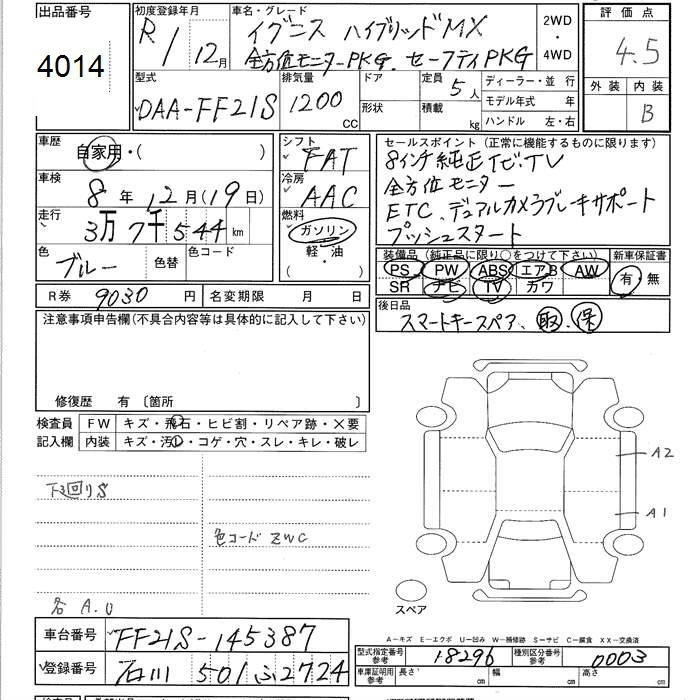 出品番号
4014
初度登録年月
R 1 12月
車名・グレード
イグニス ハイブリッドMX
全方位モニターPKG. セーフティPKG
2WD
・
4WD
評価点
4.5
外装 内装
B
型式
DAA-FF21S
排気量
1200 CC
ドア
形状
定員 5人
積載 kg
ディーラー・並行
モデル年式 年
ハンドル 左・右
車歴
自家用・( )
車検
8年12月(19日)
走行
3万7千544km
色
ブルー
色替
色コード
シフト
FAT
冷房
AAC
燃料
ガソリン
軽・油
セールスポイント (正常に機能するものに限ります)
8インチ純正ナビ・TV
全方位モニター
ETC、デュアルカメラブレーキサポート
プッシュスタート
装備品(純正品に限り○をつけて下さい)
PS PW ABS エアB AW
SR ナビ TV カワ
新車保証書
有・無
R券 9030円
名変期限 月 日
後日品
スマートキースペア、取、保
注意事項申告欄(不具合内容等は具体的に記入して下さい)
修復歴 有〔箇所 〕
検査員
記入欄
FW キズ・飛石・ヒビ割・リペア跡・×要
内装 キズ・汚れ・コゲ・穴・スレ・キレ・破レ
下回りS
色コード ZWC
各 A.U
A2
A1
スペア
A-キズ E-エクボ U-凹み W-補修跡 S-サビ C-腐食 XX-交換済
車台番号
FF21S-145387
登録番号
石川 501 ふ 2724
型式指定番号
参考
18296
種別区分番号
参考
0003
車庫証明用
参考
長さ cm
幅 cm
高さ cm